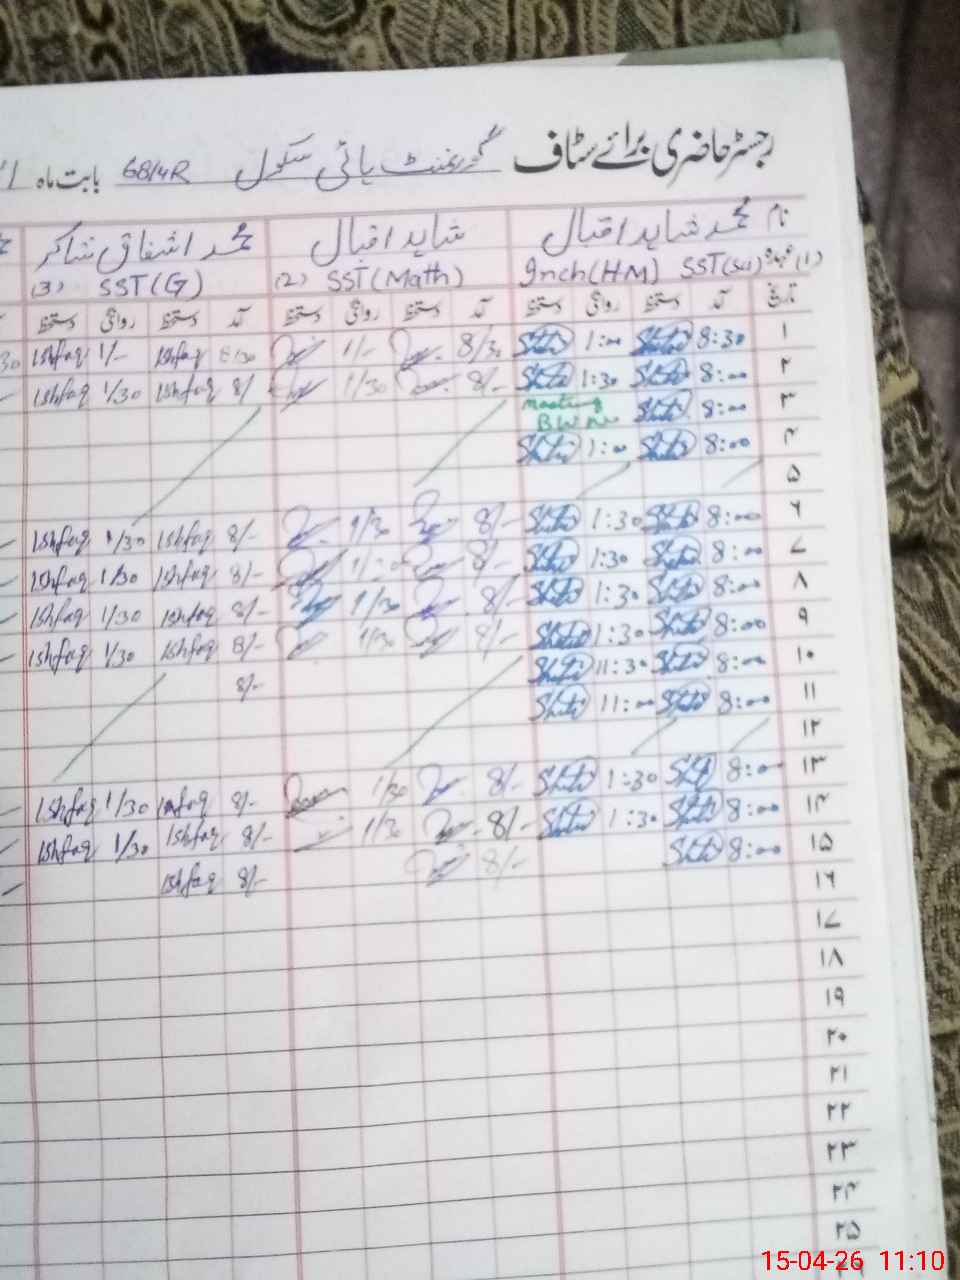 رجسٹر حاضری برائے سٹاف گورنمنٹ ہائی سکول 68/4R بابت ماہ
نام محمد شاہد اقبال شاہد اقبال محمد اشفاق شاکر
عہدہ (1) SST(Sci) Inch(HM) (2) SST(Math) (3) SST(G)
تاریخ آمد دستخط روانگی دستخط آمد دستخط روانگی دستخط آمد دستخط روانگی دستخط
۱ 8:30 1:00 8/30 1/- 8/30 Ishfaq 1/- Ishfaq
۲ 8:00 1:30 8/- 1/30 8/- Ishfaq 1/30 Ishfaq
۳ 8:00 Meeting
۴ 8:00 1:00
۵
۶ 8:00 1:30 8/- 1/30 8/- Ishfaq 1/30 Ishfaq
۷ 8:00 1:30 8/- 8/- Ishfaq 1/30 Ishfaq
۸ 8:00 1:30 8/- 1/30 8/- Ishfaq 1/30 Ishfaq
۹ 8:00 1:30 8/- 1/30 8/- Ishfaq 1/30 Ishfaq
۱۰ 8:00 11:30 8/-
۱۱ 8:00 11:00
۱۲
۱۳ 8:00 1:30 8/- 1/30 8/- Ishfaq 1/30 Ishfaq
۱۴ 8:00 1:30 8/- 1/30 8/- Ishfaq 1/30 Ishfaq
۱۵ 8:00 8/- 8/- Ishfaq
۱۶
۱۷
۱۸
۱۹
۲۰
۲۱
۲۲
۲۳
۲۴
۲۵
15-04-26 11:10